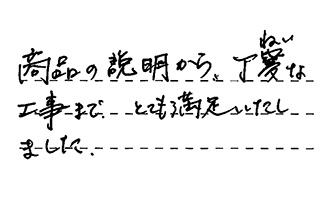 商品の説明から、丁寧な
工事まで とても満足いたし
ました。